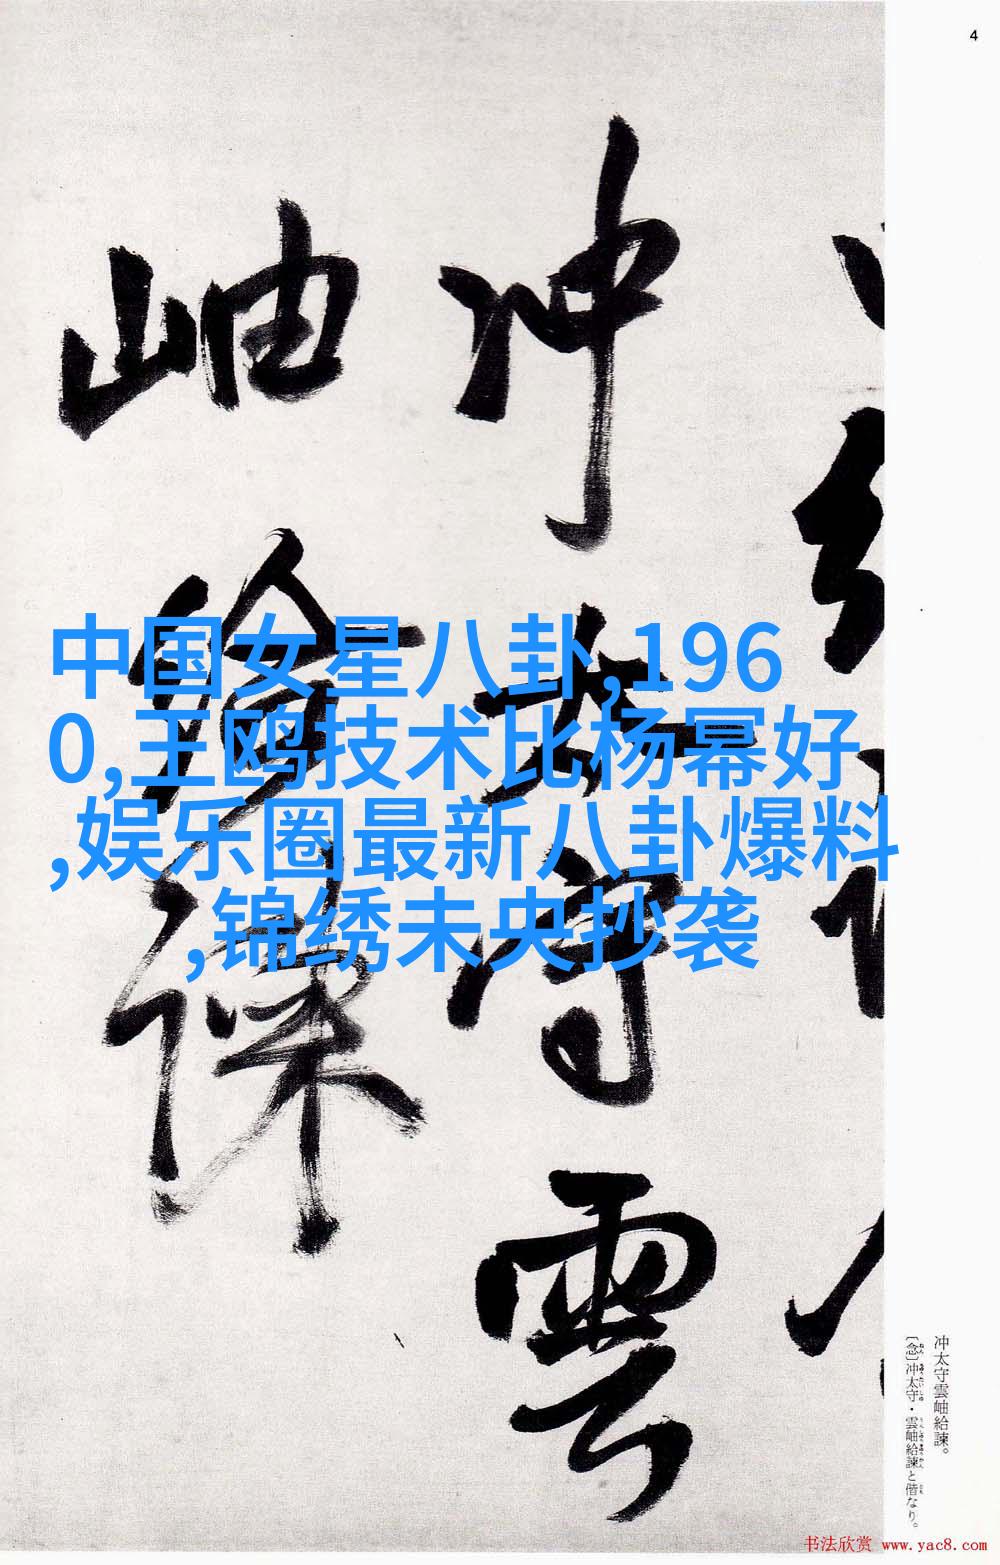 4
冲太守雲
岫給諫
中国女星八卦,196
0,王鸥技术比杨幂好
,娱乐圈最新八卦爆料
,锦绣未央抄袭
冲太守雲岫給諫。
冲太守・雲岫給諫と偕なり。
书法欣赏 www.yac8.com